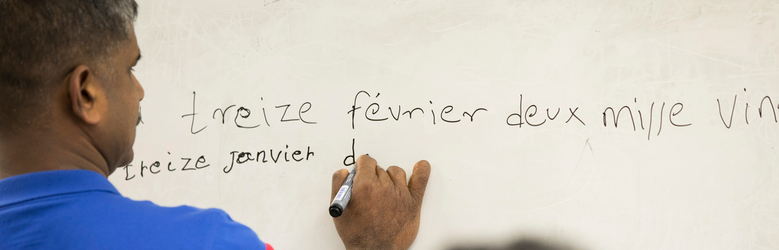 treize février deux mille vin
treize janvier d